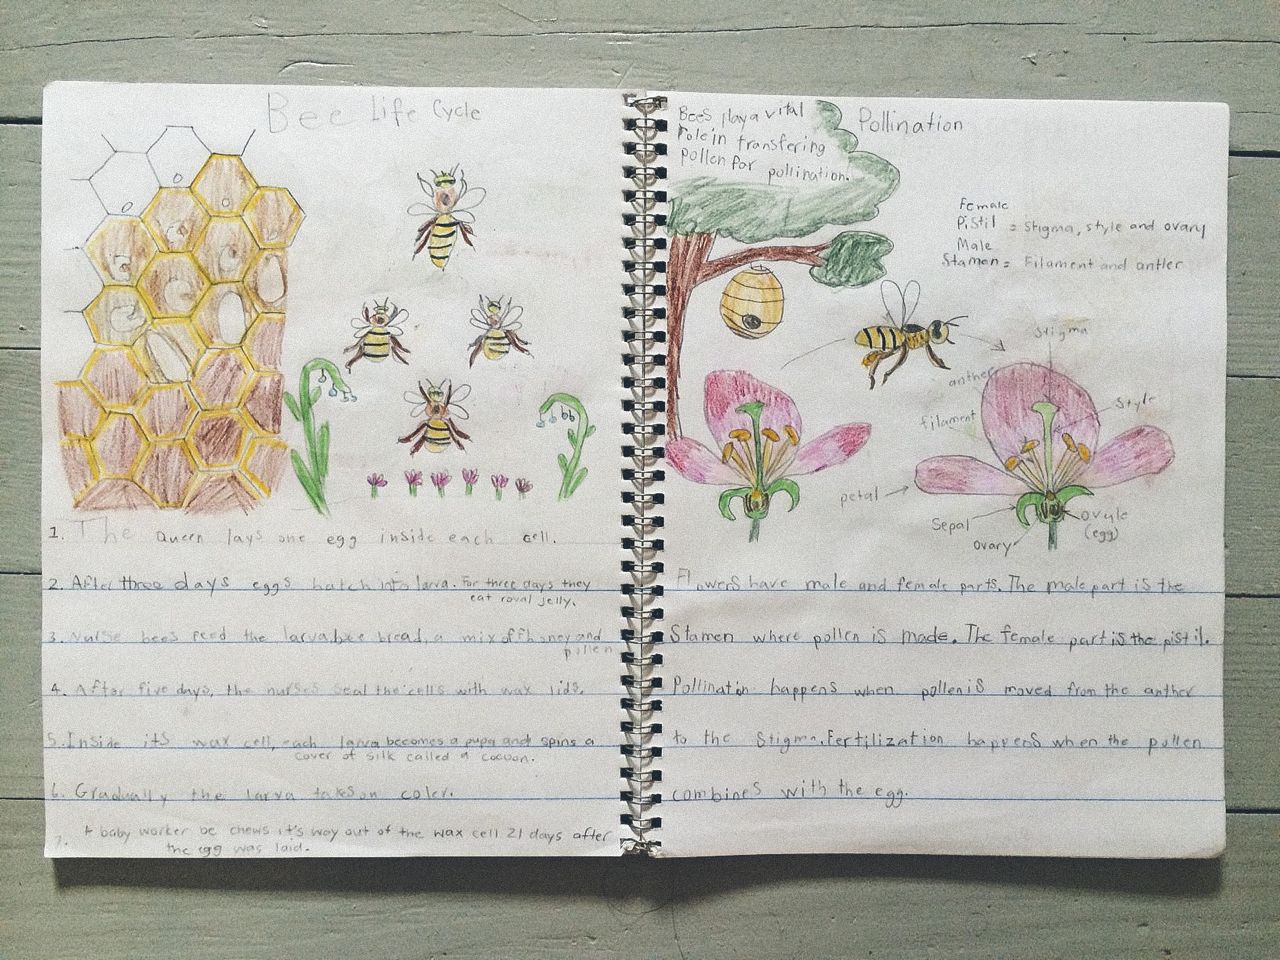 Bee Life Cycle
1. The Queen lays one egg inside each cell.
2. After three days eggs hatch into larva. For three days they
eat royal jelly.
3. Nurse bees feed the larva bee bread, a mix of honey and
pollen
4. After five days, the nurses seal the cells with wax lids.
5. Inside its wax cell, each larva becomes a pupa and spins a
cover of silk called a cocoon.
6. Gradually the larva takes on color.
7. A baby worker be chews it's way out of the wax cell 21 days after
the egg was laid.
Bees play a vital
role in transfering
pollen for pollination.
Pollination
Female
Pistil = Stigma, style and ovary
Male
Stamen = Filament and antler
Stigma
anther
Style
filament
petal
Sepal
Ovary
Ovule
(egg)
Flowers have male and female parts. The male part is the
Stamen where pollen is made. The female part is the pistil.
Pollination happens when pollen is moved from the anther
to the Stigma. Fertilization happens when the pollen
combines with the egg.